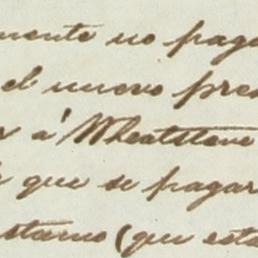 mente no paga
el nuevo pres
á Wheatstone
que se pagar
(que esta